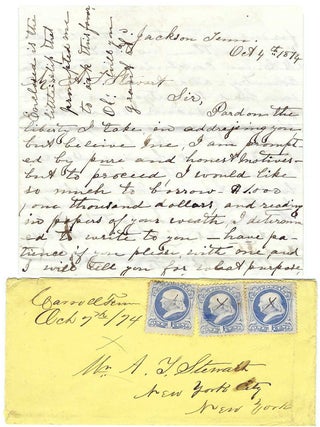 Jackson Tenn.
Oct 4th 1874
Stewart
Sir,
Pardon the
liberty I take in addressing you
but believe me, I am prompt
ed by pure and honest motives-
but to proceed, I would like
so much to borrow $1.000
one thousand dollars, and reading
in papers of your wealth I determin
ed to write to you. have pa
tience if you please with one and
I will tell you for what purpose
Enclosed is the
little slip that
promoted me
to ask this favor
Oh, will you
grant it
Carroll Tenn
Oct 7th/74
Mr. A. T. Stewart
New York City
New York